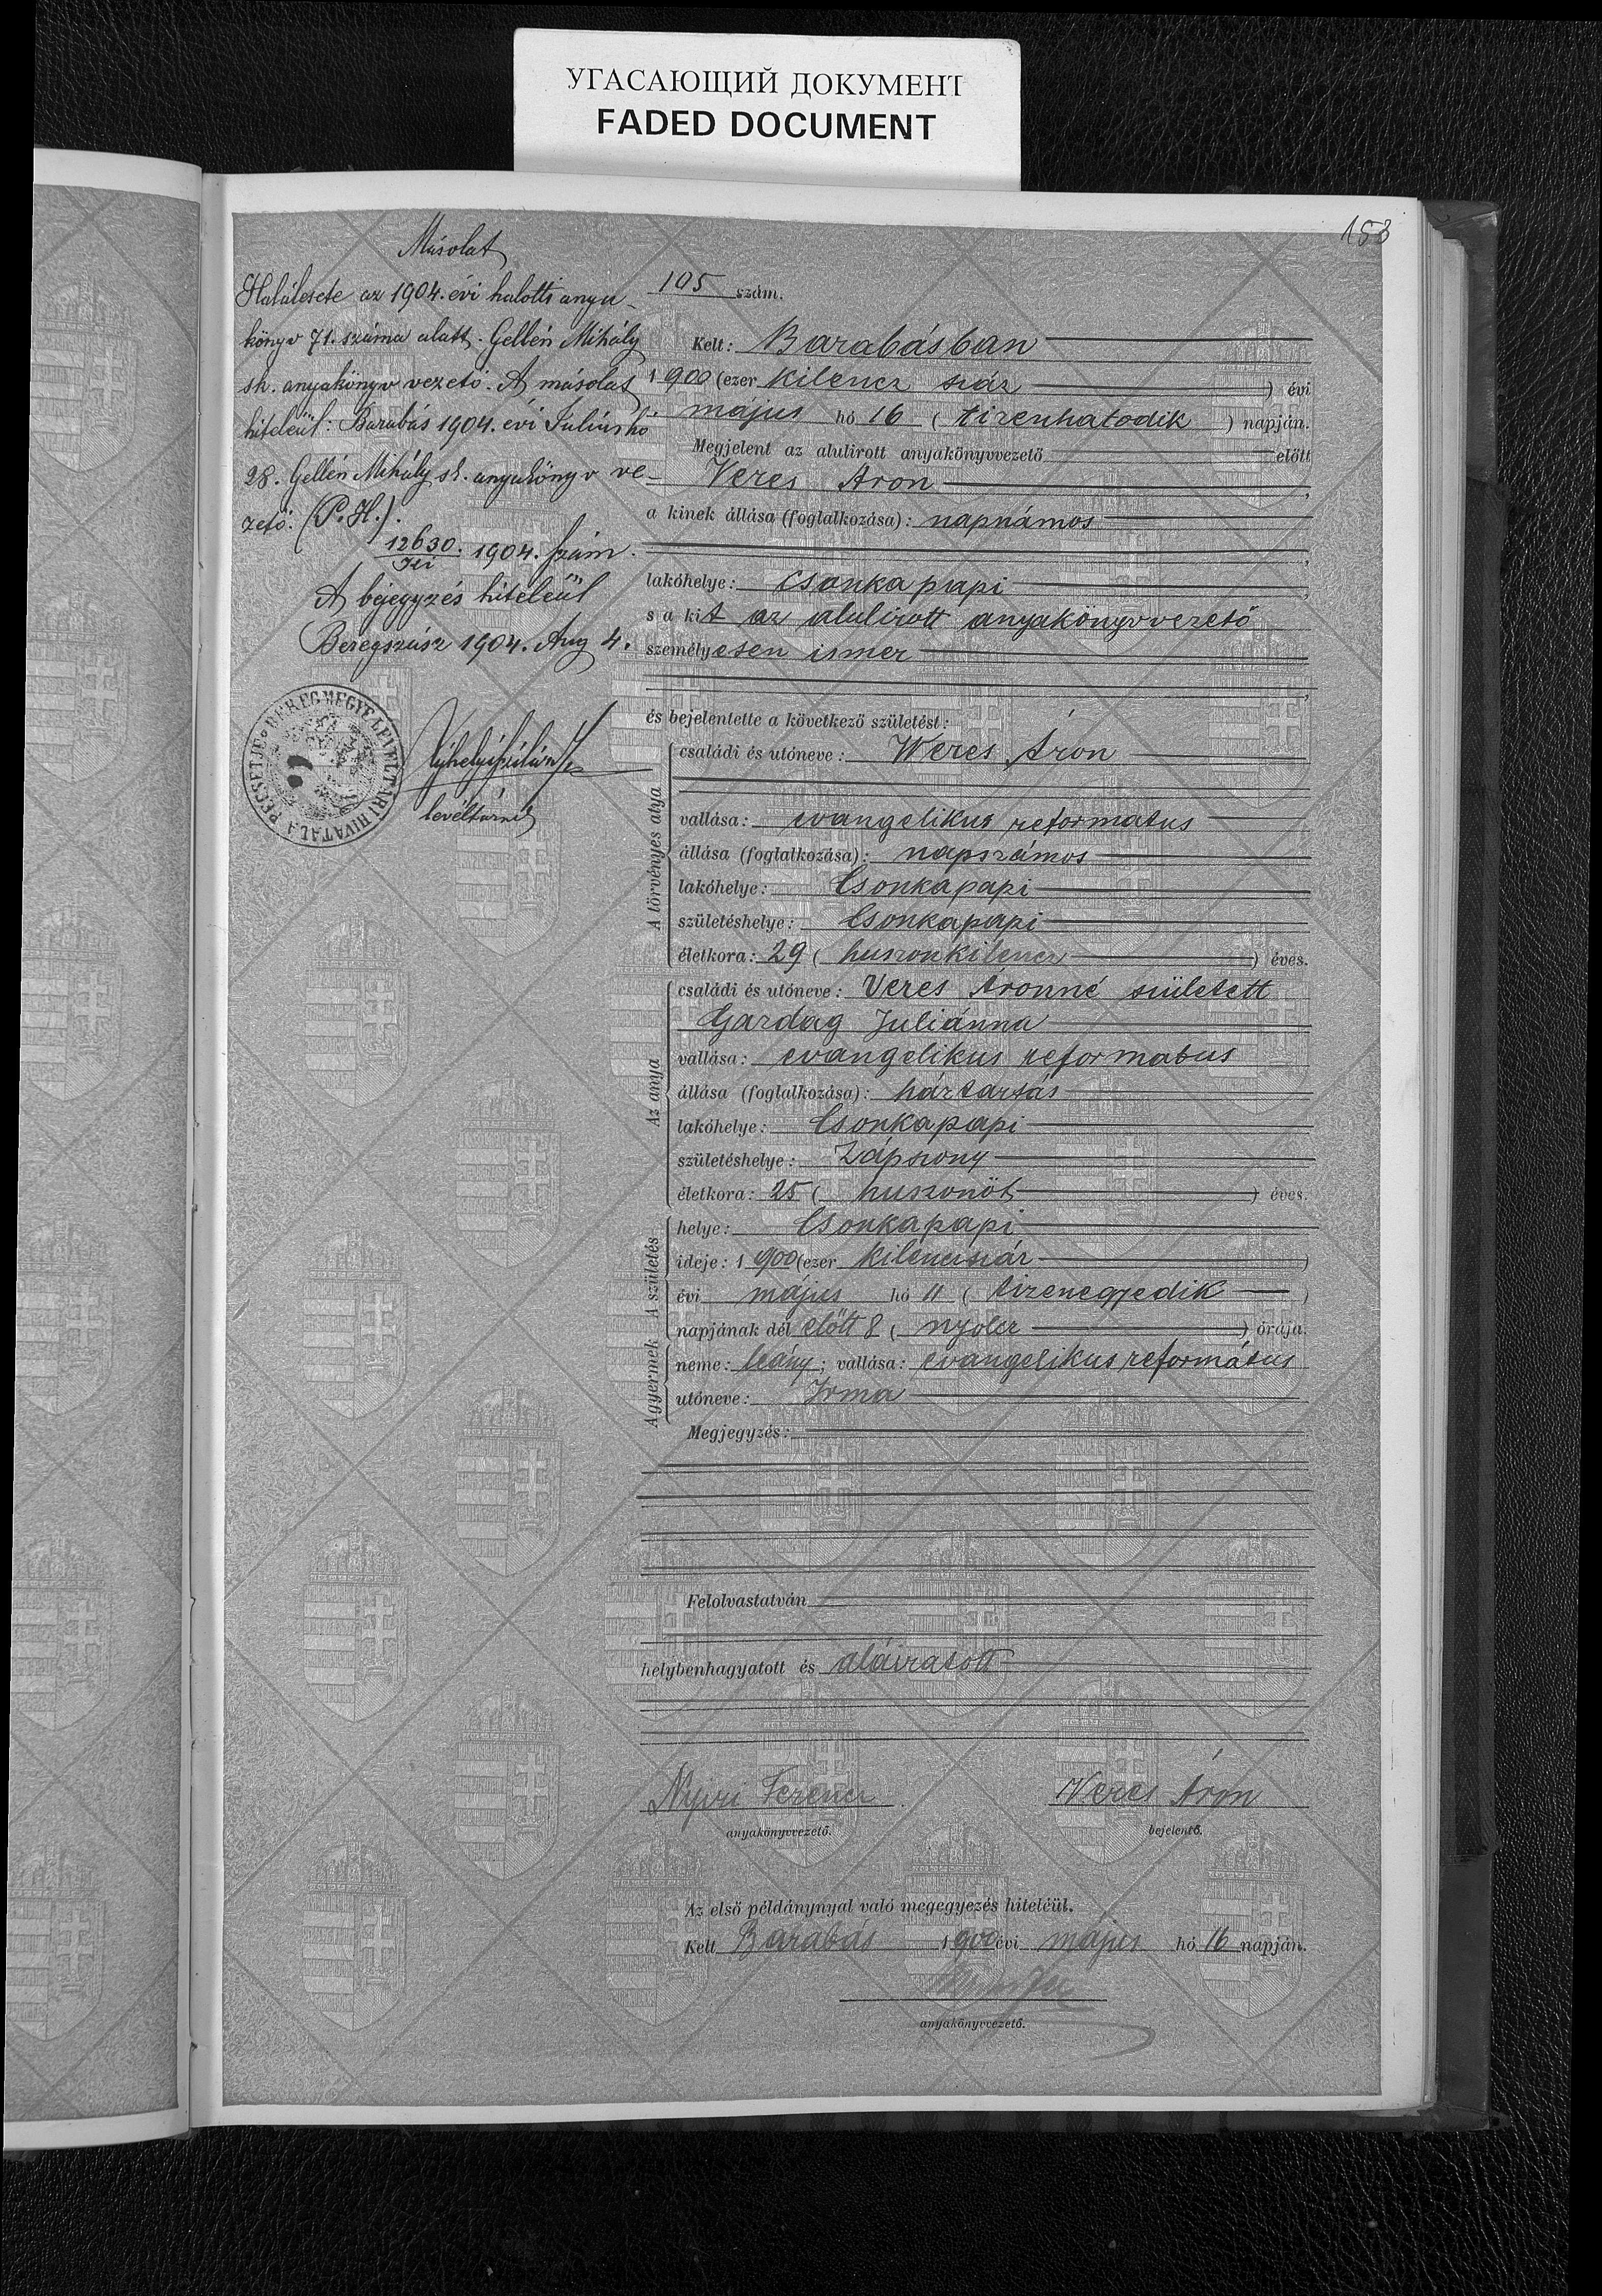 УГАСАЮЩИЙ ДОКУМЕНТ
FADED DOCUMENT
153
Másolat
Halálesete az 1904. évi halotti anya-
könyv 71. száma alatt. Gellén Mihály
sk. anyakönyv vezető. A másolat
hiteléül: Barabás 1904. évi Julius hó
28. Gellén Mihály sk. anyakönyv ve-
zető. (P. H.).
12630 / 1904. szám.
A bejegyzés hiteléül
Beregszász 1904. Aug 4.
BEREGMEGYE LEVÉLTÁRI HIVATALA PECSÉTJE
levéltárnok
105 szám.
Kelt: Barabásban
1900 (ezer kilencz száz ) évi
május hó 16 ( tizenhatodik ) napján.
Megjelent az alulirott anyakönyvvezető előtt
Veres Áron ,
a kinek állása (foglalkozása): napnámos
,
lakóhelye: Csonka papi ,
s a kit az alulirott anyakönyvvezető
személyesen ismer
,
és bejelentette a következő születést:
A törvényes atya
családi és utóneve: Weres Áron
vallása: evangelikus reformatus
állása (foglalkozása): napszámos
lakóhelye: Csonkapapi
születéshelye: Csonkapapi
életkora: 29 ( huszonkilencz ) éves.
Az anya
családi és utóneve: Veres Áronné született
Gazdag Juliánna
vallása: evangelikus reformatus
állása (foglalkozása): háztartás
lakóhelye: Csonkapapi
születéshelye: Zápszony
életkora: 25 ( huszonöt ) éves.
A születés
helye: Csonkapapi
ideje: 1900 (ezer kilenczszáz )
évi május hó 11 ( tizenegyedik )
napjának dél előtt 8 ( nyolcz ) órája.
A gyermek
neme: leány; vallása: evangelikus református
utóneve: Irma
Megjegyzés:
Felolvastatván
helybenhagyatott és aláiratott
Nyiri Ferencz Veres Áron
anyakönyvvezető. bejelentő.
Az első példánynyal való megegyezés hiteléül.
Kelt Barabás 1900 évi május hó 16 napján.
anyakönyvvezető.